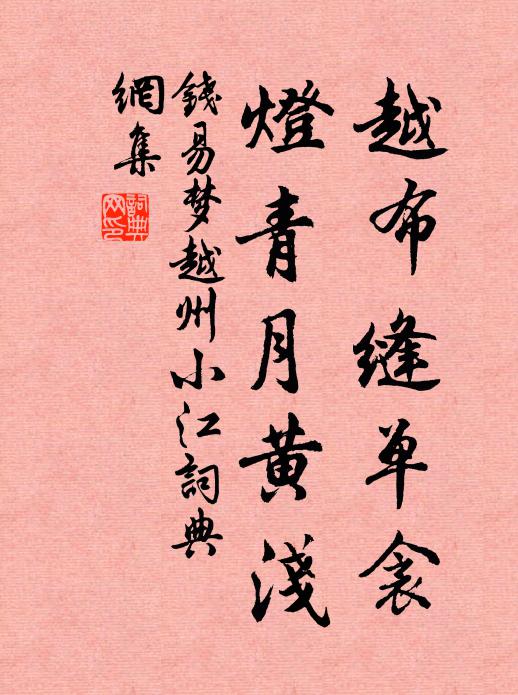 越布縫单衾
燈青月黄淺
錢易梦越州小江詞典
網集
詞典網印